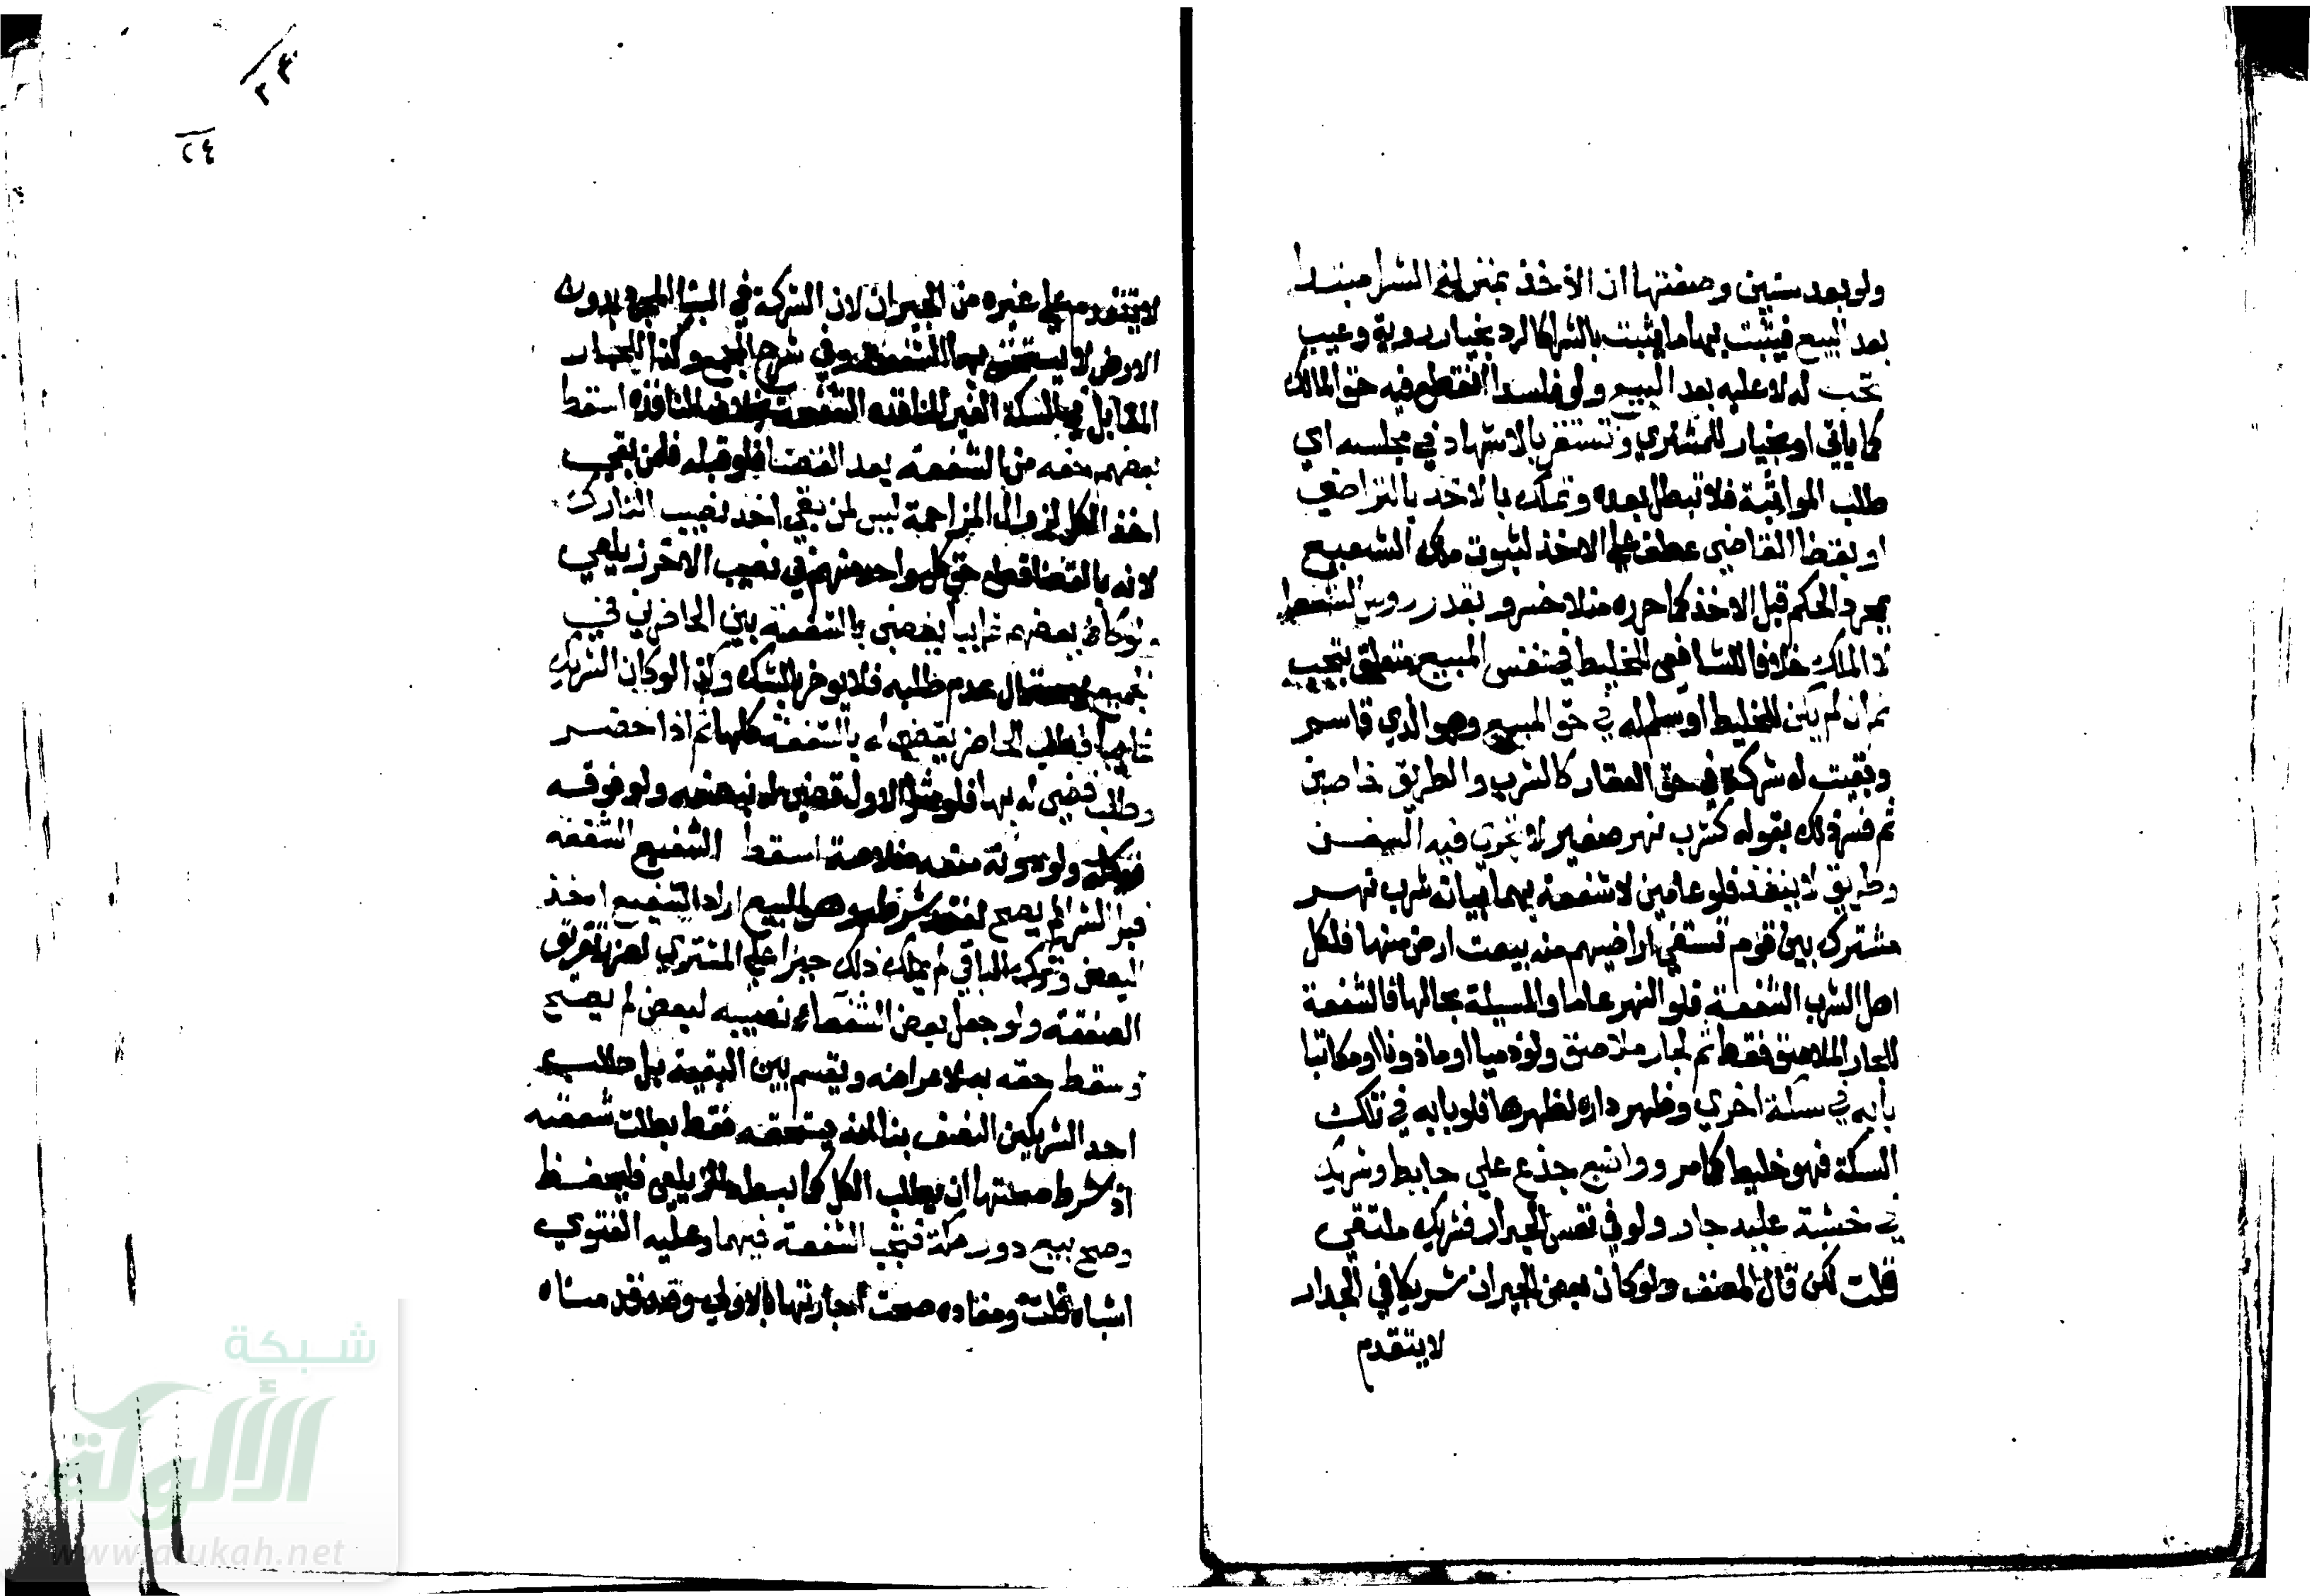 ولو بعد سنين وصفتها ان الاخذ بمنزلة الشرا مبتدا
بعد البيع فيثبت بها ما يثبت بالشرا كالرد بخيار روية وعيب
تجب له لا عليه بعد البيع ولو فاسدا انقطع فيه حق المالك
كما ياتي او بخيار للمشتري وتستقر بالاشهاد في مجلسه اي
طلب المواثبة فلا تبطل بعده وتملك بالاخذ بالتراضي
او بقضا القاضي عطف على الاخذ لثبوت ملك الشفيع
بمجرد الحكم قبل الاخذ كما حرره منلا خسرو بقدر روس الشفعا
لا الملك خلافا للشافعي للخليط في نفس المبيع متعلق بتجب
ثم ان لم يكن للخليط او سلم له في حق المبيع وهو الذي قاسم
وبقيت له شركة في حق العقار كالشرب والطريق خاصين
ثم فسر ذلك بقوله كشرب نهر صغير لا تجري فيه السفن
وطريق لا ينفذ فلو عامين لا شفعة بهما بيانه شرب نهر
مشترك بين قوم تسقي اراضيهم منه بيعت ارض منها فلكل
اهل الشرب الشفعة فلو النهر عاما والمسيلة بحالها فالشفعة
للجار الملاصق فقط ثم لجار ملاصق ولو ذميا او ماذونا او مكاتبا
بابه في سكة اخرى وظهر داره لظهرها فلو بابه في تلك
السكة فهو خليط كما مر وواضع جذع على حايط وشريك
في خشبة عليه جار ولو في نفس الجدار فشريك ملتقى
قلت لكن قال المصنف ولو كان بعض الجيران شريكا في الجدار
لا يتقدم
لا يتقدم على غيره من الجيران لان الشركة في البنا المجرد بدون
الارض لا يستحق بها الشفعة وفي شرح المجمع وكذا للجار
المقابل في السكة الغير النافذه الشفعة بخلاف النافذه اسقط
بعضهم حقه من الشفعة بعد القضا فلو قبله فلمن بقي
اخذ الكل لزوال المزاحمة ليس لمن بقي اخذ نصيب التارك
لانه بالقضا قطع حق كل واحد منهم في نصيب الاخر زيلعي
ولو كان بعضهم غايبا يقضى بالشفعة بين الحاضرين في
الجميع لاحتمال عدم طلبه فلا يوخر بالشك وكذا لو كان الشريك
غايبا فطلب الحاضر يقضى له بالشفعة كلها ثم اذا حضر
وطلب قضي له بها فلو مثل الاول قضي له بنصفه ولو فوقه
فبكله ولو دونه منعه خلاصة اسقط الشفيع الشفعة
قبل الشرا لم يصح لفقد شرطه وهو البيع اراد الشفيع اخذ
البعض وترك الباقي لم يملك ذلك جبرا على المشتري لضرر تفريق
الصفقة ولو جعل بعض الشفعاء نصيبه لبعض لم يصح
وسقط حقه به لاعراضه ويقسم بين البقية بل طلب
احد الشريكين النصف بنا انه يستحقه فقط بطلت شفعته
اذ شرط صحتها ان يطلب الكل كما بسطه الزيلعي فليحفظ
وصح بيع دور مكة فتجب الشفعة فيها وعليه الفتوى
اشباه قلت ومفاده صحت اجارتها بالاولى وقد قدمناه
٢٤
٢٤
شبكة
الألوكة
www.alukah.net